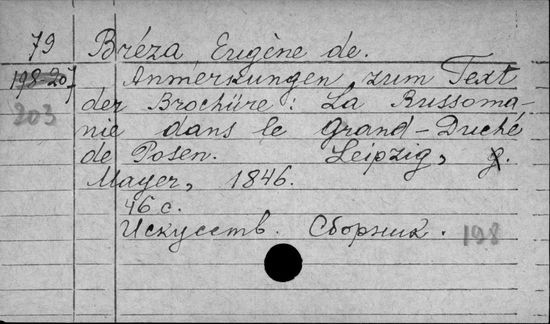 79 Bréza Eugène de.
198-207 Anmerkungen zum Text
der Brochüre: La Russoma-
203
nie dans le Grand-Duché
de Posen. Leipzig, g.
Mayer, 1846.
46 с.
Искусств. Сборник. 198